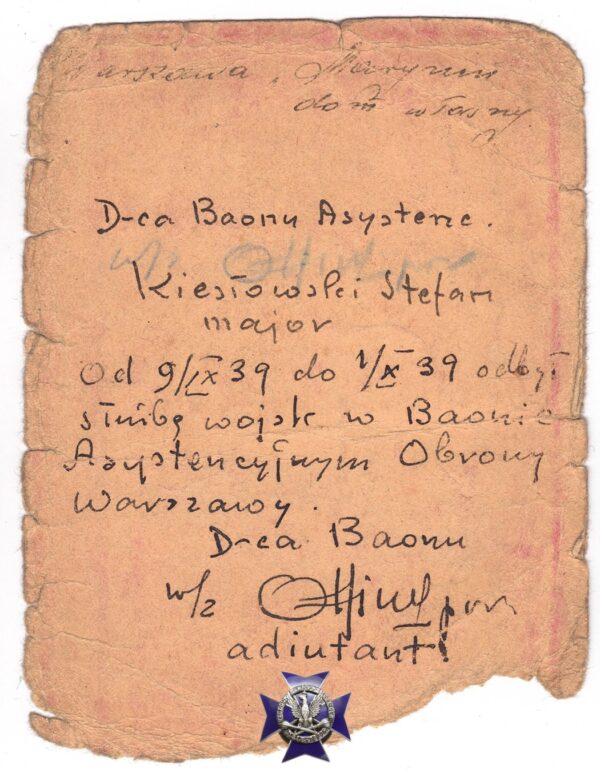 Warszawa, Marymin
dom własny
D-ca Baonu Asystenc.
w/z
Kiesłowski Stefan
major
Od 9/IX 39 do 1/X 39 odbył
służbę wojsk w Baonie
Asystencyjnym Obrony
Warszawy.
D-ca Baonu
w/z por
adiutant!